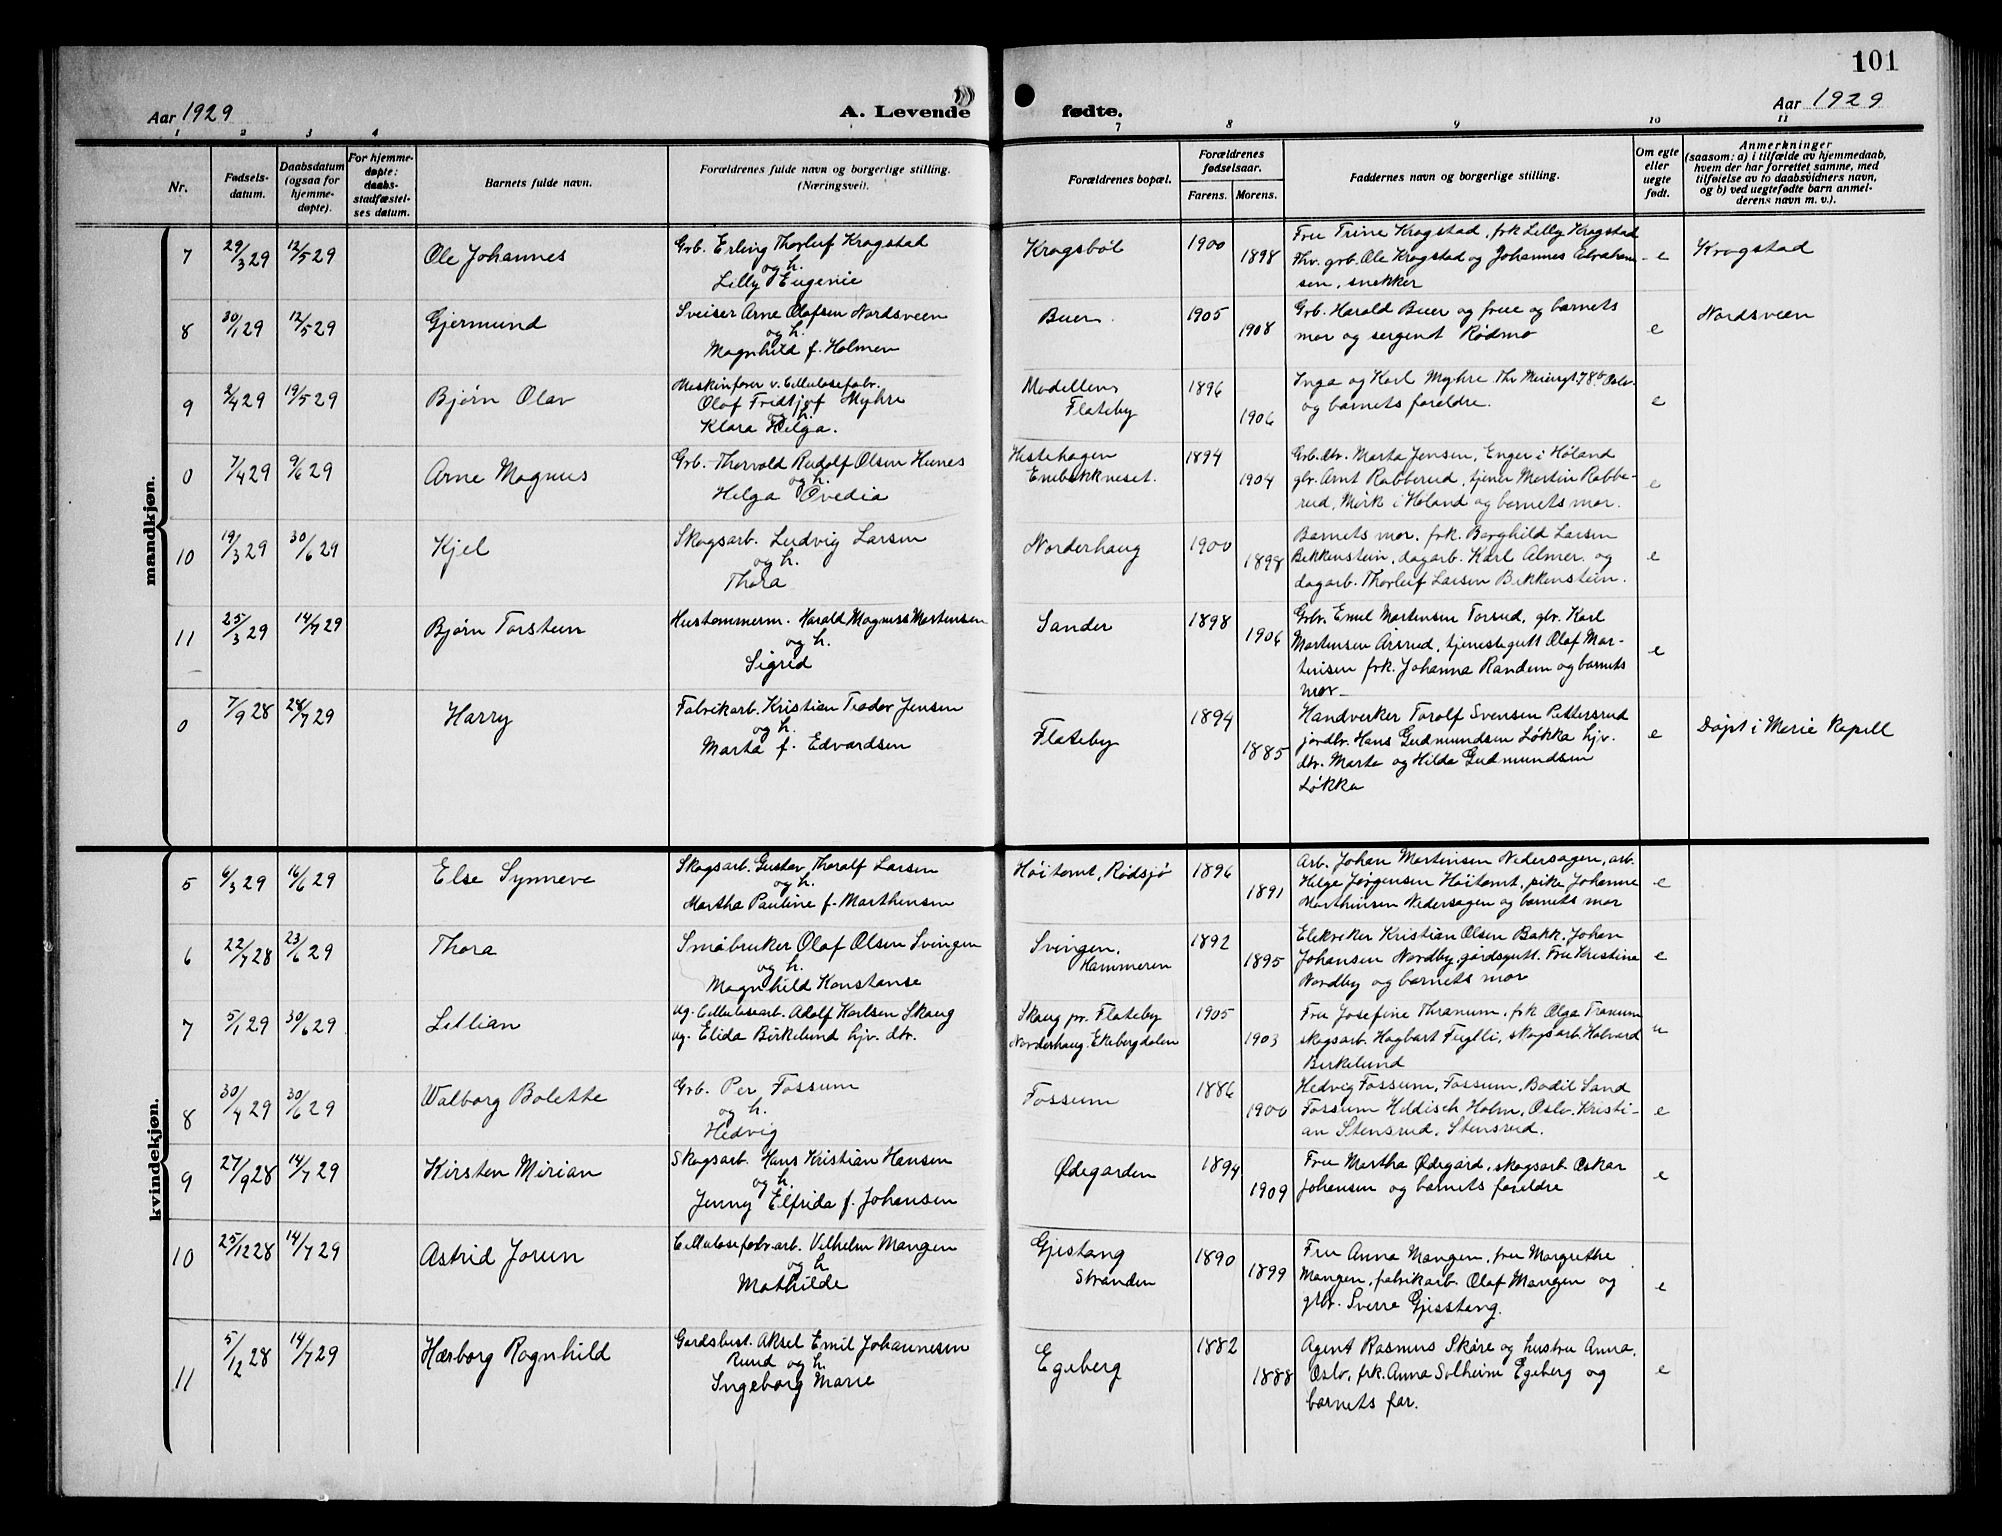 101
Aar 1929
A. Levende
fødte.
Aar 1929
1 2 3 4 7 8 9 10 11
Nr.
Fødselsdatum.
Daabsdatum (ogsaa for hjemmedøpte).
For hjemmedøpte: daabsstadfæstelses datum.
Barnets fulde navn.
Forældrenes fulde navn og borgerlige stilling. (Næringsvei).
Forældrenes bopæl.
Forældrenes fødselsaar.
Farens. Morens.
Faddernes navn og borgerlige stilling.
Om egte eller uegte født.
Anmerkninger
(saasom: a) i tilfælde av hjemmedaab, hvem der har forrettet samme, med tilføielse av to daabsvidners navn, og b) ved uegtefødte barn anmelderens navn m. v.).
mandkjøn.
7 29/3 29 12/5 29 Ole Johannes
Grb. Erling Thorleif Krogstad
og h.
Lilly Eugenie
Krogsbøl 1900 1898
Fru Trine Krogstad, frk Lilly Krogstad
Thv. grb. Ole Krogstad og Johannes Abraham
sen, snekker
e Krogstad
8 30/1 29 12/5 29 Gjermund
Sveiser Arne Olafsen Nordsveen
og h.
Magnhild f. Holmen
Buer 1905 1908
Grb. Harald Buer og frue og barnets
mor og sergent Rødmo
e Nordsveen
9 2/4 29 19/5 29 Bjørn Olav
Maskinfører v. Cellulosefabr.
Olaf Fridtjof Myhre
og h.
Klara Helga.
Modellen, Flateby 1896 1906
Inga og Karl Myhre
og barnets foreldre.
e
0 7/4 29 9/6 29 Arne Magnus
Grb. Thorvald Rudolf Olsen Hunes
og h.
Helga Ovedia
Hestehagen
Enebakkneset. 1894 1904
Grb.dtr. Marta Jensen, Enger i Høland
gbr. Arnt Rabberud, tjener Martin Rabbe-
rud, Mörk i Høland og barnets mor.
e
10 19/3 29 30/6 29 Kjel
Skogsarb. Ludvig Larsen
og h.
Thora
Norderhaug 1900 1898
Barnets mor, frk. Borghild Larsen
Bekkenstein, dagarb. Karl Almer og
dagarb. Thorleif Larsen Bekkenstein.
e
11 25/3 29 14/7 29 Bjørn Torstein
Hustømmerm. Harald Magnus Martensen
og h.
Sigrid
Sander 1898 1906
Grbr. Emil Martensen Torsrud, gbr. Karl
Martensen Aasrud, tjenestegutt Olaf Mar-
tinsen frk. Johanna Randem og barnets
mor
e
0 7/9 28 28/7 29 Harry
Fabrikarb. Kristian Teodor Jensen
og h.
Marta f. Edvardsen
Flateby 1894 1885
Handverker Torolf Svensen Pettersrud
jordbr. Hans Gudmundsen Løkka hjv.
dtr. Marta og Hilda Gudmundsen
Løkka
e Døpt i Marie Kapell
kvindekjøn.
5 6/3 29 16/6 29 Else Synneve
Skogsarb. Gustav Thoralf Larsen
og h.
Martha Pauline f. Marthinsen
Høitomt, Rødsjø 1896 1891
Arb. Johan Martinsen Nedersagen, arb.
Helge Jørgensen Høitomt, pike Johanne
Marthinsen Nedersagen og barnets mor
e
6 22/7 28 23/6 29 Thora
Småbruker Olaf Olsen Svingen
og h.
Magnhild Konstanse
Svingen, Hammeren 1892 1895
Kristian Olsen Bakk. Johan
Johansen Nordby, gårdsgutt. Fru Kristine
Nordby og barnets mor
e
7 5/1 29 30/6 29 Lillian
Ug. Cellulosearb. Adolf Karlsen Skaug
ug. Elida Birkelund hjv. dtr.
Skaug pr. Flateby
Norderhaug. Ekebergdalen 1905 1903
Fru Josefine Thranum, frk Olga Tranum
skogsarb. Hagbart Fuglli, skogsarb. Halvard
Birkelund
u
8 30/4 29 30/6 29 Walborg Bolette
Grb. Per Fossum
og h.
Hedvig
Fossum 1886 1900
Hedvig Fossum, Fossum, Bodil Sand
Fossum Hidisch Holm, Oslo. Kristi-
an Stensrud, Stensrud.
e
9 27/9 28 14/7 29 Kirsten Mirian
Skogsarb. Hans Kristian Hansen
og h.
Jenny Elfrida f. Johansen
Ødegarden 1894 1909
Fru Martha Ødegård, skogsarb. Oskar
Johansen og barnets foreldre
e
10 25/12 28 14/7 29 Astrid Jorun
Cellulosefabr.arb. Vilhelm Mangen
og h.
Mathilde
Gjestang
Stranden 1890 1899
Fru Anna Mangen, fru Margrethe
Mangen, fabrikarb. Olaf Mangen og
gbr. Sverre Gjesstang.
e
11 5/12 28 14/7 29 Hærborg Ragnhild
Gardsbest. Aksel Emil Johannesen
Rund og h.
Ingeborg Marie
Egeberg 1882 1888
Agent Rasmus Skåre og hustru Anna,
Oslo, frk. Anna Solheim Egeberg og
barnets far.
e